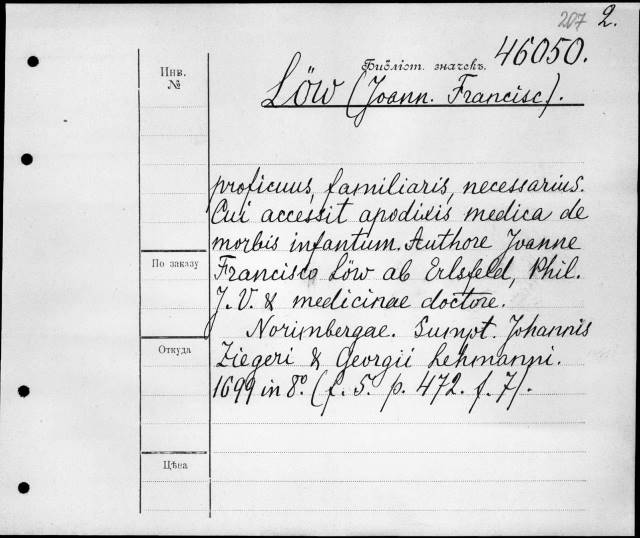 207 2.
Инв.
№
Библіот. значекъ. 46050.
Löw (Joann. Francisc).
proficuus, familiaris, necessarius.
Cui accessit apodixis medica de
morbis infantum. Authore Joanne
Francisco Löw ab Erlsfeld, Phil.
J. V. & medicinae doctore.
Norimbergae. Sumpt. Johannis
Ziegeri & Georgii Lehmanni.
1699 in 8º. (f. 5. p. 472. f. 7).
По заказу
Откуда
Цѣна